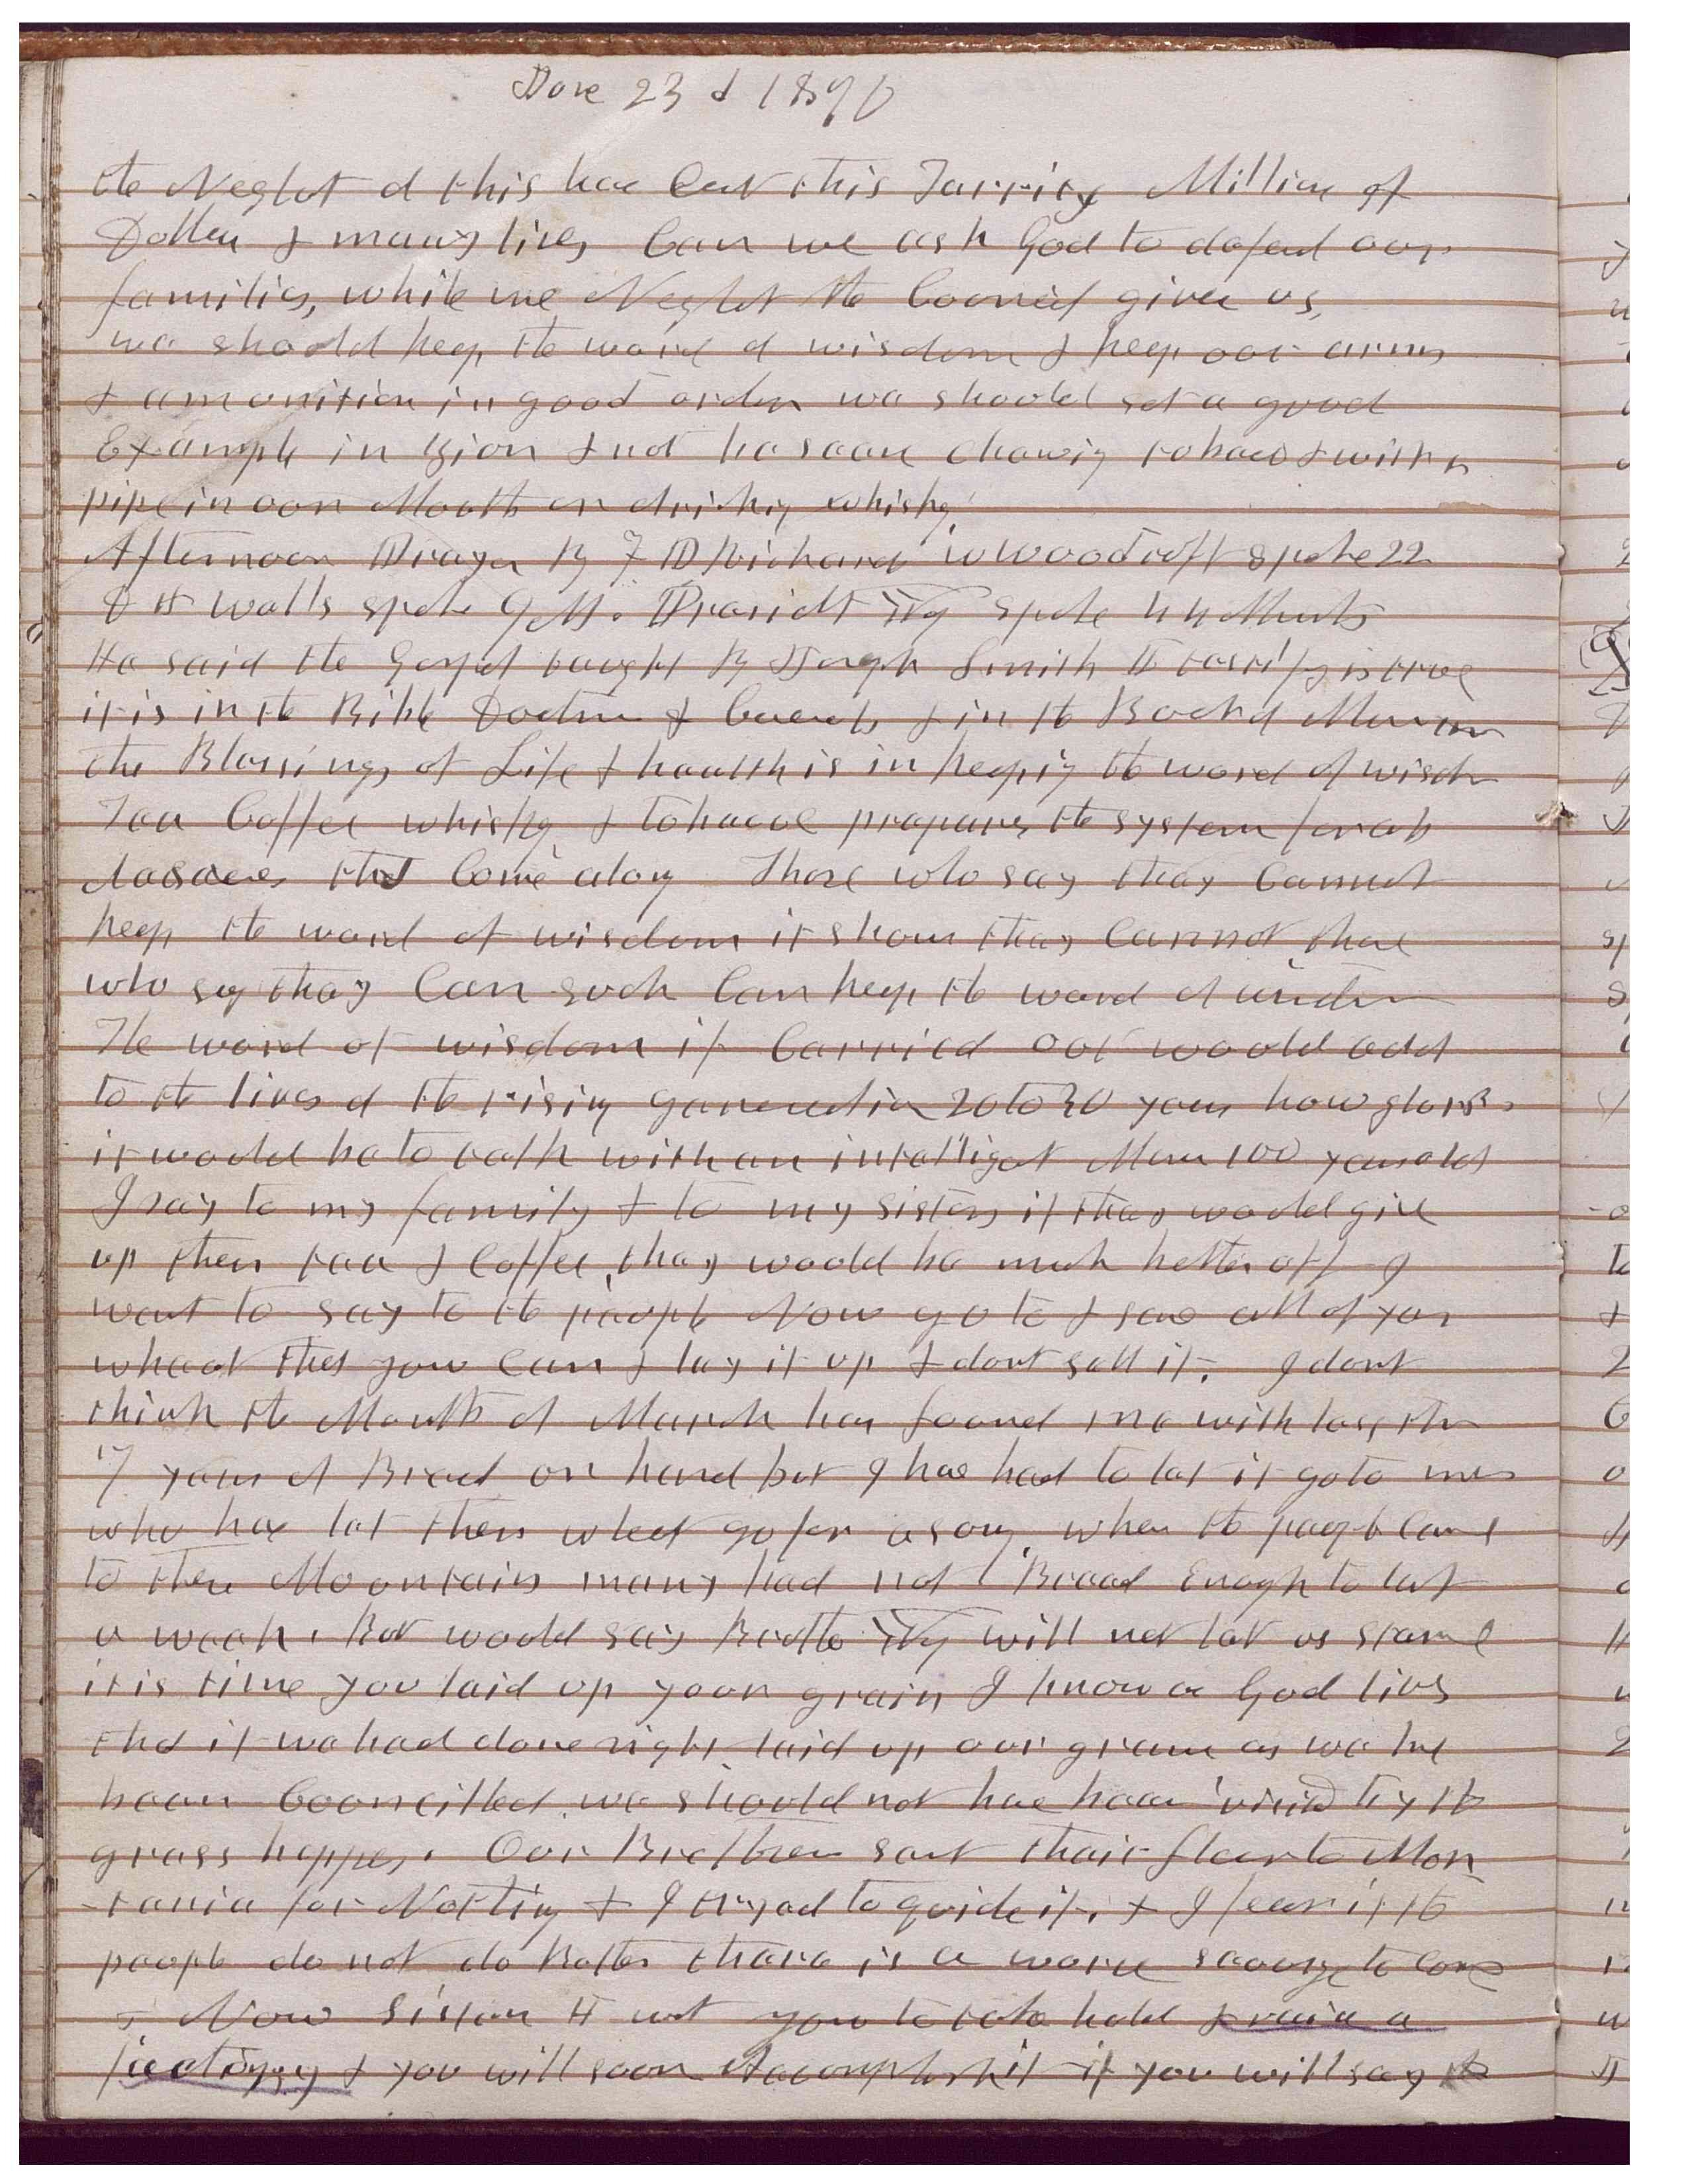 23 d 18
the Neglet of this has Cost this Terrirty Million of
Dollars & many lives Can we ask God to defend our
families, while we Neglet the Councel given us,
we should keep the word of wisdom & keep our arms
& amunition in good order we should set a good
Example in Zion & not be seen chewing tobaco & with a
pipe in our Mouth or drinkg whisky
Afternoon Prayer By F D Richards W Woodruff spoke 22
D H Wells spoke 9 M. Presidt Yg spoke 44 Minuts
He said the Gospel taught By Joseph Smith I testify is true
it is in the Bible Doctrin & Covenants & in the Book of Mormon
the Blessings of Life & health is in keepig the word of wisdom
Tea Coffee whisky & tobacco prepares the system for all
deseases that Come along Those who say they Cannot
keep the word of wisdom it shows they Cannot those
who say they Can such Can keep the word of wisdom
The word of wisdom if Carried out would add
to the lives of the rising generation 20 to 30 years how glorious
it would be to talk with an intelligent Man 100 years old
I say to my family & to my sisters if they would give
up their tea & Coffee, they would be much better off I
want to say to the people Now go to & save all of your
wheat that you Can & lay it up & dont sell it. I dont
think the Month of March has found me with less than
7 years of Bread on hand but I have had to let it go to men
who have let their wheat go for a song when the people Came
to these Mountains many had not Bread Enough to last
a week. But would say Brother Yg will not let us starve
it is time you laid up your grain I know as God lives
that if we had done right laid up our grain as we have
been Councilled we should not have been visited by the
grass hoppers. Our Brethren sent their flour to Mon
-tania for Nothing & I tryed to guide it, & I fear if the
people do not do Better there is a worse scourge to Come
Now Sisters I want you to take hold & raise a
& you will soon Accomplish it if you will say